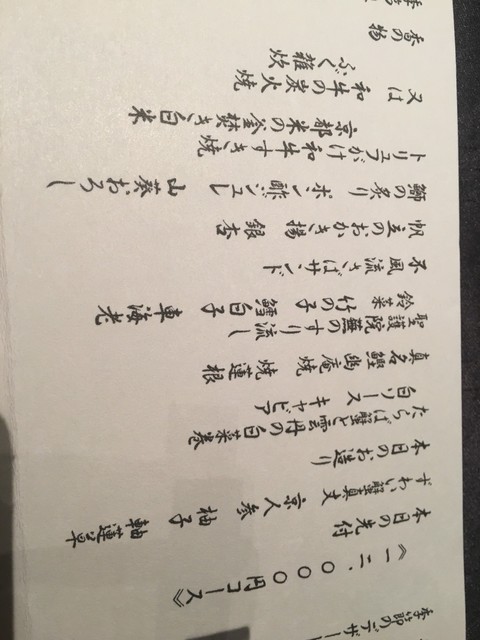 季節のデザー
《一二、〇〇〇円コース》
本日の先付
ずわい蟹真丈 京人参 柚子 軸蓮草
本日のお造り
たらば蟹と雲丹の白菜巻
白ソース キャビア
真名鰹幽庵焼 焼蓮根
聖護院蕪のすり流し
鈴菜 竹の子 鱈白子 車海老
不風流さばサンド
帆立のおかき揚 銀杏
鰤の炙り ポン酢ジュレ 山葵おろし
トリュフがけ和牛すき焼
京都米の釜焚き白米
又は 和牛の炭火焼
ふぐ雑炊
香の物